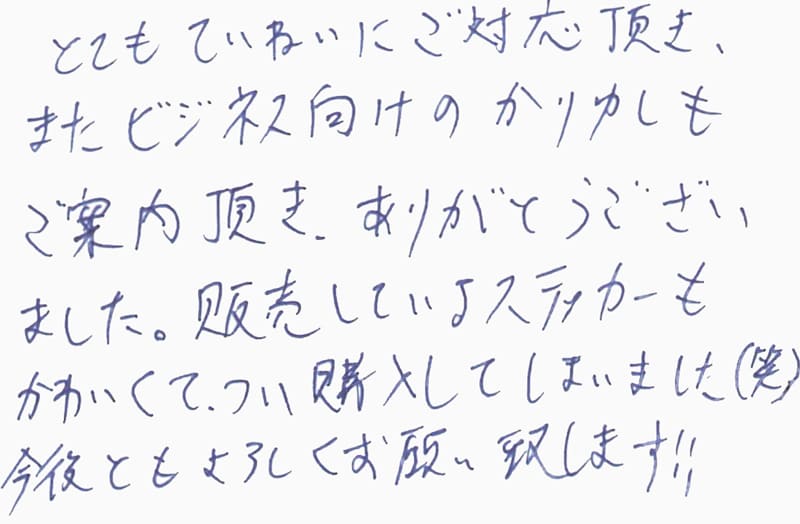 とてもていねいにご対応頂き、
またビジネス向けのかりゆしも
ご案内頂き、ありがとうござい
ました。販売しているステッカーも
かわいくて、つい購入してしまいました(笑)
今後ともよろしくお願い致します!!